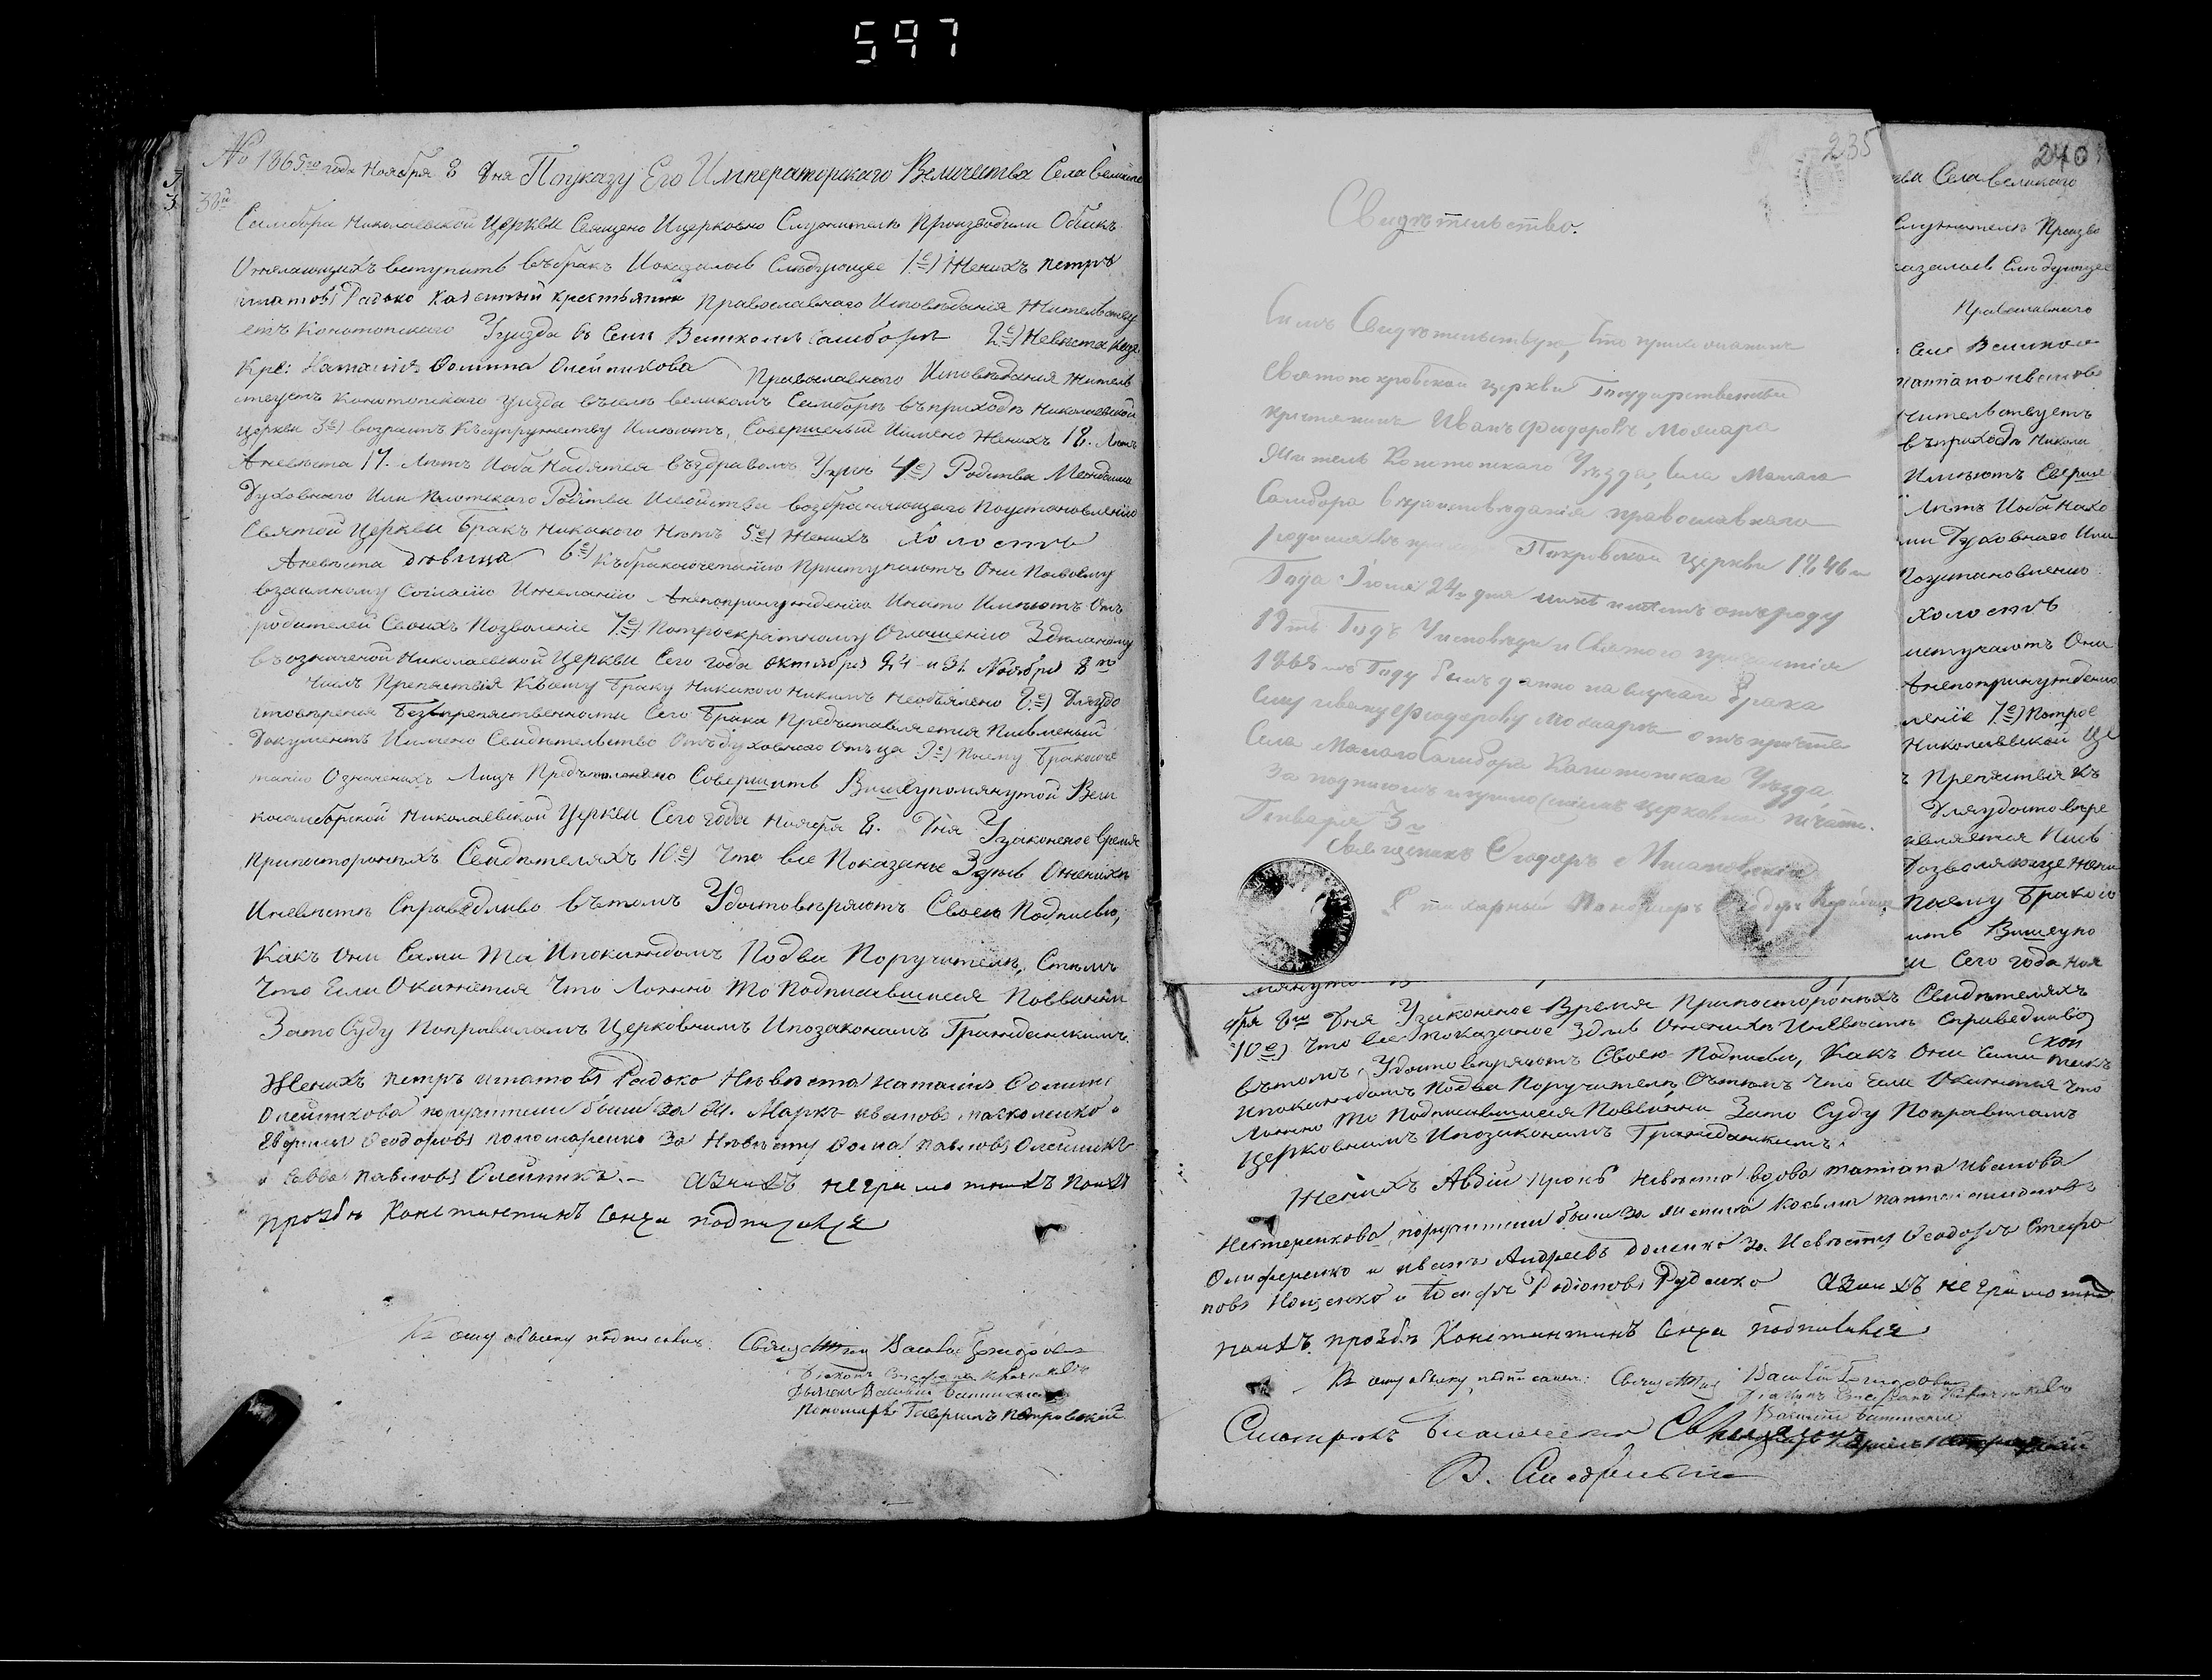 597
№ 1865го года Ноября 8 дня По указу Его Императорскаго Величества Села Велико
38й Самбора Николаевской Церкви Священо Ицерковно Служители Производили Обыскъ
Ожелающихъ вступить въбракъ Иоказалось Слѣдующее 1е) Женихъ Петръ
Игнатовъ Радько Казенный крестьянин Православнаго Исповѣдания Жительству
етъ Конотопскаго Уѣзда въ Селѣ Великомъ Самборѣ 2е) Невѣста каз:
Кре: Наталия Фомина Олейникова Православного Исповѣдания Житель
ствуетъ Конотопскаго Уѣзда въселѣ великомъ Самборѣ въприходѣ Николаевской
Церкви 3е) возрастъ Късупружеству Имѣютъ, Совершеный Иимено Женихъ 18. Лѣтъ
Аневѣста 17. Лѣтъ Иоба Находятся въздравомъ Умѣ 4е) Родства Междыими
Духовнаго Или Плотскаго Родства Исвойства возбраняющаго Поустановлению
Святой Церкви Бракъ Никакого Нѣтъ 5е) Женихъ Холостъ
Аневѣста Дѣвица 6е) Къбракосочетанию Приступаютъ Они Посвоему
взаимному Согласию Ижеланию Анепопринуждению Инато Имѣютъ Отъ
родителей Своихъ Позволение 7е) Потроекратному Оглашению Зделаному
въозначеной Николаевской Церкви Сего года Октября 24 и 31 Ноября 8го
числъ Препятствия Късему Браку Никакого Никимъ Необявлено 8е) Дляудо
стовѣрения Безпрепятственности Сего Брака Предъставляется Письменый
Документъ Иимено Свидѣтельство Отъдуховнаго Отьца 9е) Посему Бракосоче
танию Означеныхъ Лицъ Предъположено Совершить Вышеупомянутой Вели
косамборской Николаевской Церкви Сего года Ноября 8. Дня Узаконеное время
Припосторонихъ Свидѣтеляхъ 10е) Что все Показаное Здѣсь Оженихѣ
Иневѣстѣ Справедливо вътомъ Удостовѣряютъ Своею Подписью,
Какъ Они Сами Такъ Ипокаждомъ Подва Поручителя, Стѣмъ
Что Если Окажется Что Ложно То Подписавшиеся Повинни
Зато Суду Поправиламъ Церковнимъ Ипозаконамъ Гражданскимъ.
Женихъ Петръ Игнатовъ Радько Невѣста Наталия Фомина
Олейникова поручители были за Ж. Маркъ Ивановъ
Феодоровъ Пономаренко За Невѣсту Фома Павловъ Олейникъ
и Савва Павловъ Олейникъ. – Азаихъ неграмотныхъ Поихъ
прозбѣ Константинъ Сенча подписався
Къ сему обыску подписались: Священникъ Василий
Диаконъ Стефанъ
Дьячокъ Василий
Пономарь Гавриилъ Петровский
235
Свидѣтельство.
Симъ Свидѣтельствую, что прихожанинъ
Святопокровской церкви Государственный
крестянинъ Иванъ Фидоровъ
Житель Конотопскаго Уѣзда, Села Малаго
Самбора вѣроисповѣдания православнаго
родился въ приходѣ Покровской церкви 1846го
Года Июня 24го дня отъроду
19ть Годъ Уисповѣди и Святого причастия
1865мъ Году былъ данно на случай брака
сему Ивану Фидорову отъ причта
Села Малаго Самбора Конотопскаго Уѣзда,
За подписомъ и приложениемъ церковной печати.
Генваря 3го
Священникъ Фидоръ
Пономарь
240
Села Великого
Служители Произво
казалось Слѣдующее
Православнаго
Селѣ Великом
Татиана Иванова
Жительствуетъ
въприходѣ Никола
Имѣютъ Сверше
Лѣтъ Иоба Нахо
Духовнаго Или
Поустановлению
холостъ
иступаютъ Они
Анепопринуждению
ление 7е) Потрое
Николаевской Це
Препятствия къ
Дляудостовѣре
авляется Пись
Дозволяюще Жени
Посему Бракосо
ить Вышеупо
и Сего года Ноя
мянутой
бря 8го Дня Узаконеное Время Припосторонихъ Свидѣтеляхъ
10е) Что все показаное Здѣсь Оженихѣ Иневѣстѣ Справедливо
вътомъ Удостовѣряютъ Своею Подписью, Какъ Они Сами такъ
Ипокаждомъ Подва Поручителя, Сътѣмъ Что Если Окажется Что
Ложно То Подписавшиеся Повинни Зато Суду Поправиламъ
Церковнимъ Ипозаконамъ Гражданскимъ.
Женихъ Авдий Невѣста вдова Татиана Иванова
Нестеренкова, поручители были за Жениха Косьма
Олиференко и Иванъ Андреевъ Доленко за Невѣсту Феодоръ Стефа
новъ и Иосифъ Родионовъ Руденко Азаихъ неграмотныхъ
поихъ прозбѣ Константинъ Сенча подписався
Къ сему обыску подписались: Священникъ Василий
Диаконъ Стефанъ
Василий
Смотрѣлъ Благочинный Священникъ